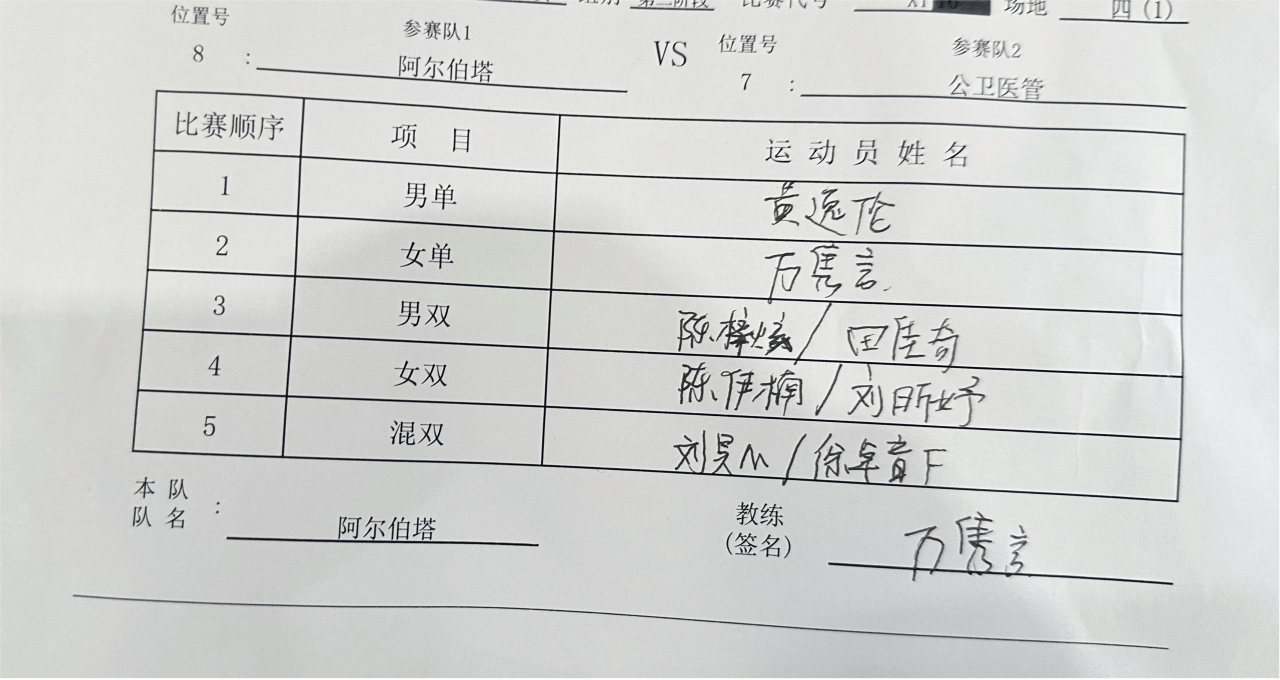 组别 第二阶段 比赛代号 XT16 场地 四(1)
位置号 参赛队1 VS 位置号 参赛队2
8 : 阿尔伯塔 7 : 公卫医管
比赛顺序 项 目 运 动 员 姓 名
1 男单 黄逸伦
2 女单 万隽言
3 男双 陈梓炫/田佳奇
4 女双 陈伊楠/刘昕妤
5 混双 刘昊 /徐卓音F
本 队 队 名 : 阿尔伯塔 教练 (签名) 万隽言